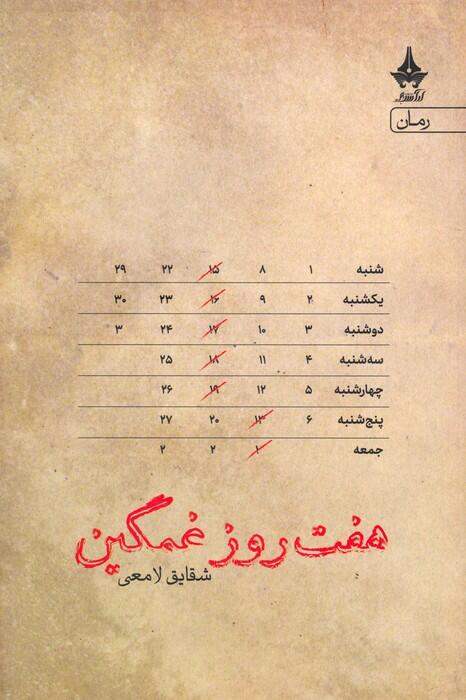 رمان
شنبه ۱ ۸ ۱۵ ۲۲ ۲۹
یکشنبه ۲ ۹ ۱۶ ۲۳ ۳۰
دوشنبه ۳ ۱۰ ۱۷ ۲۴ ۳
سه‌شنبه ۴ ۱۱ ۱۸ ۲۵
چهارشنبه ۵ ۱۲ ۱۹ ۲۶
پنج‌شنبه ۶ ۱۳ ۲۰ ۲۷
جمعه ۱ ۲ ۲
هفت روز غمگین
شقایق لامعی